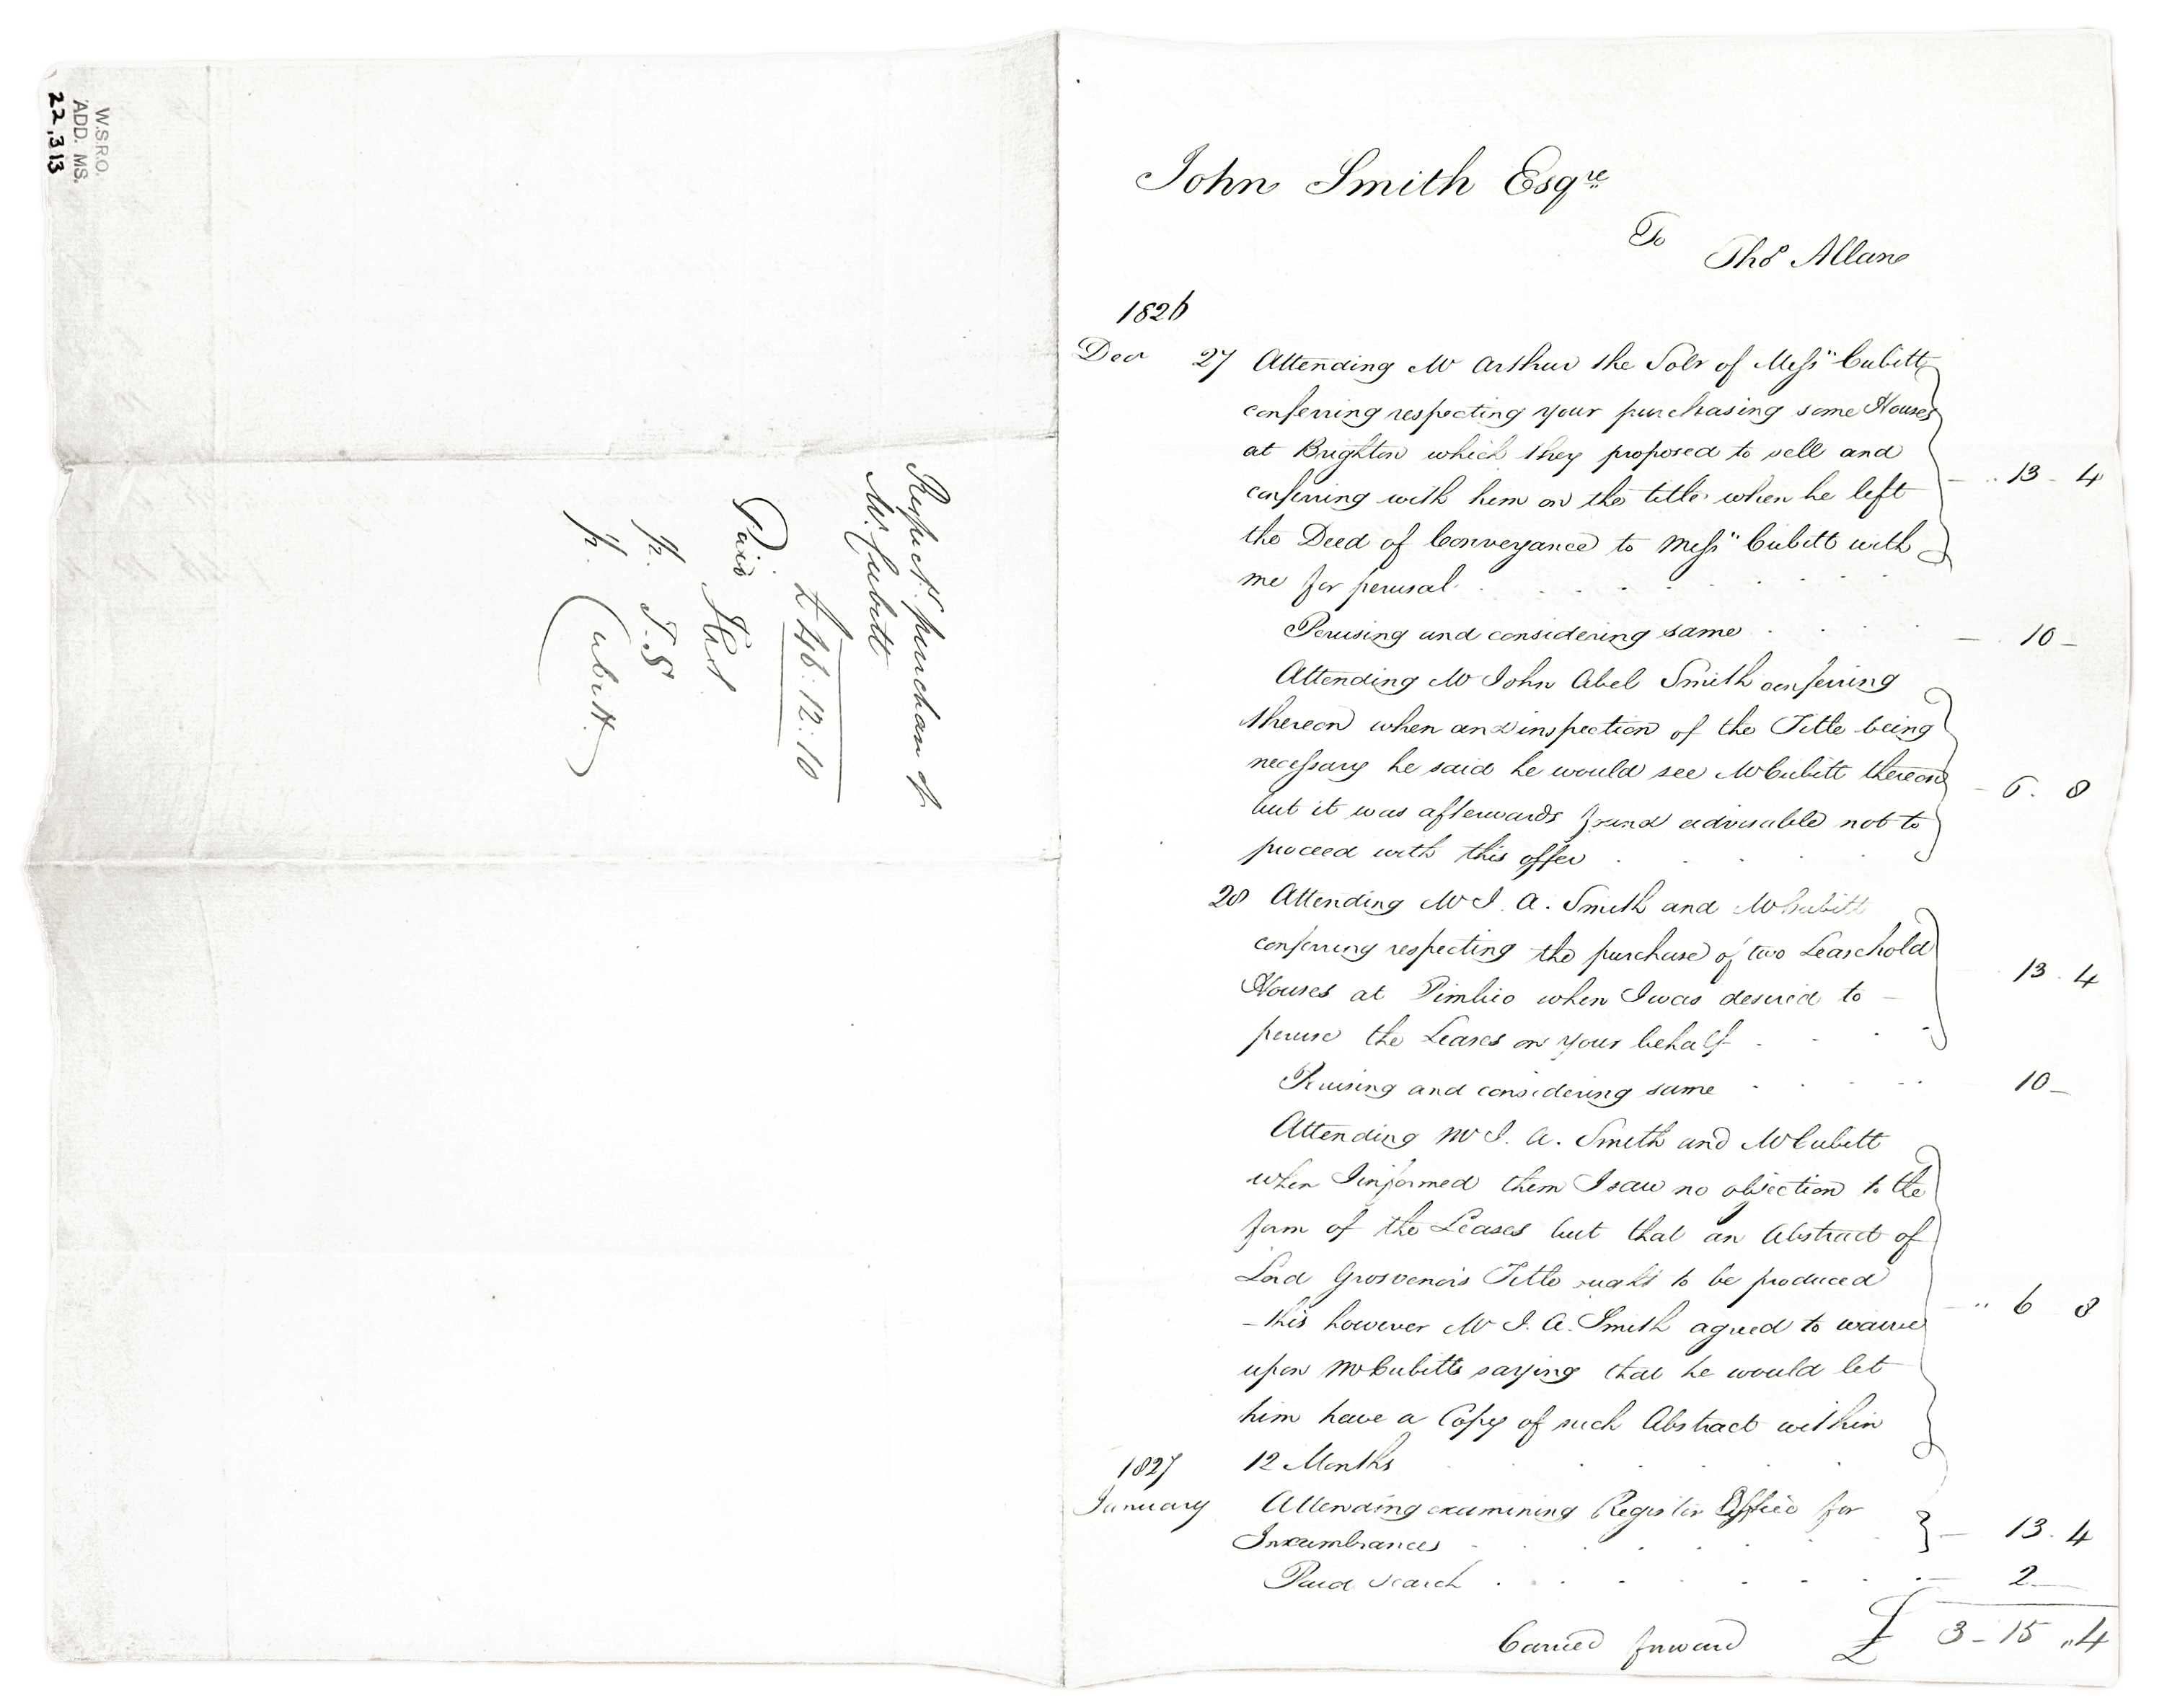 W.S.R.O.
ADD. MS.
22,313
Respect.g purchase of
Mr Cubitt
£46:12:10
Paid
p. J.S
p. Cubitt.
John Smith Esqre
To
Thos Allan
1826
Decr 27 Attending Mr Arthur the Solr of Messrs Cubitt
conferring respecting your purchasing some Houses
at Brighton which they proposed to sell and
conferring with him on the title when he left
the Deed of Conveyance to Messrs Cubitt with
me for perusal — .. 13 - 4
Perusing and considering same — 10 -
Attending Mr John Abel Smith conferring
thereon when an inspection of the Title being
necessary he said he would see Mr Cubitt thereon
but it was afterwards found advisable not to
proceed with this offer - 6. 8
28 Attending Mr J. A. Smith and Mr Cubitt
conferring respecting the purchase of two Leasehold
Houses at Pimlico when I was desired to —
peruse the Leases on your behalf 13. 4
Perusing and considering same 10 -
Attending Mr J. A. Smith and Mr Cubitt
when I informed them I saw no objection to the
form of the Leases but that an Abstract of
Lord Grosvenors Title ought to be produced
- this however Mr J. A. Smith agreed to waive
upon Mr Cubitts saying that he would let
him have a Copy of such Abstract within
12 Months - " 6 8
1827
January Attending examining Register Office for
Incumbrances — 13. 4
Paid search — 2 —
Carried forward £ 3 - 15 " 4